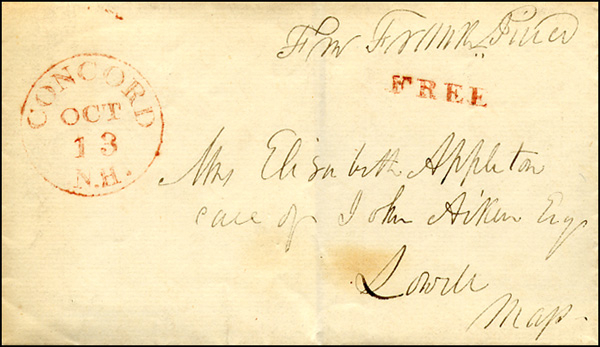 Free Frank. Pierce
FREE
CONCORD
OCT
13
N.H.
Mrs Elisabeth Appleton
care of John Aiken Esq
Lowell
Mass.